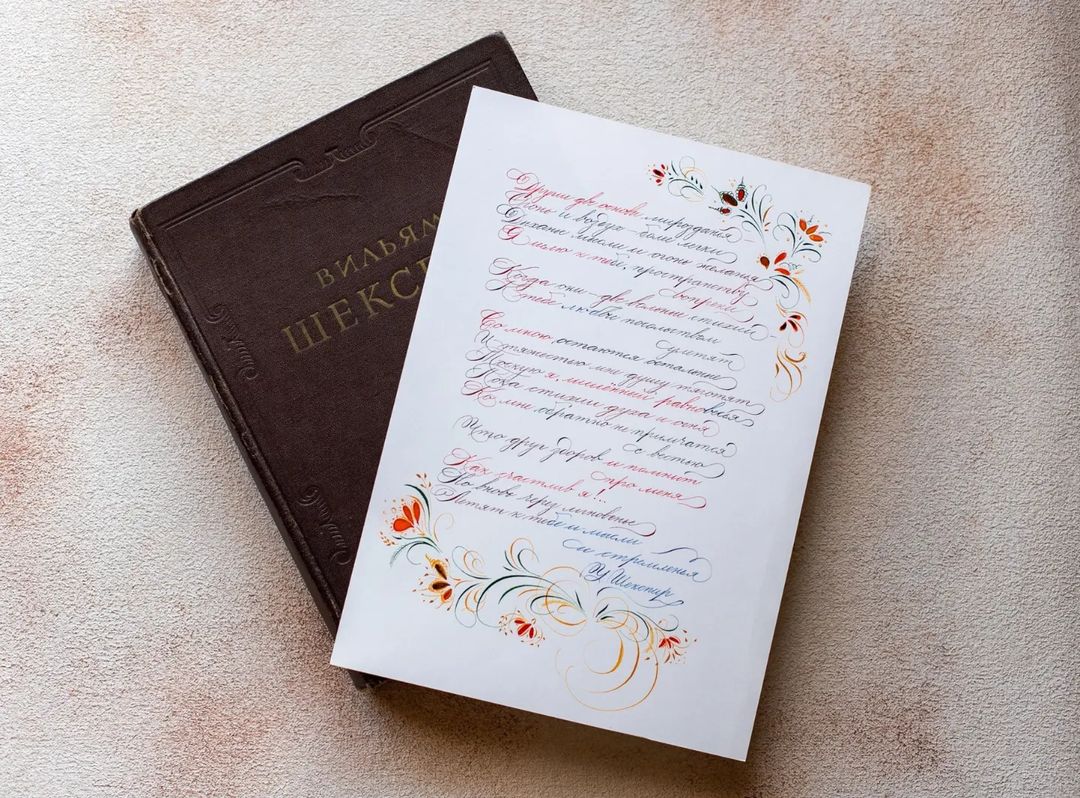 ВИЛЬЯМ
ШЕКС
Другие две основы мирозданья –
Огонь и воздух – более легки
Дыханье мысли и огонь желанья
Я шлю к тебе, пространству
вопреки
Когда они – две вольные стихии
К тебе любви посольством
улетят
Со мною остаются остальные
И тяжестью мне душу тяготят
Тоскую я, лишённый равновесья
Пока стихии духа и огня
Ко мне обратно не примчатся
с вестью
Что друг здоров и помнит
про меня
Как счастлив я!..
Но вновь через мгновенье
Летят к тебе и мысли
и стремленья
У. Шекспир